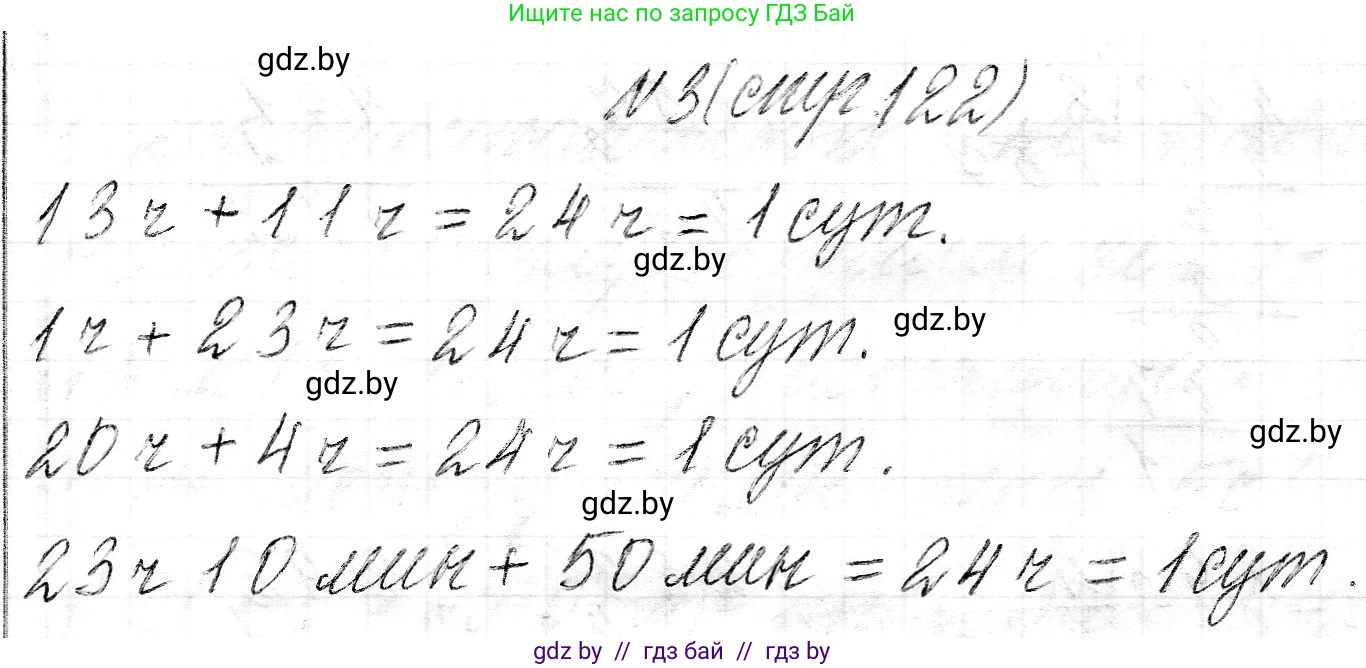 Ищите нас по запросу ГДЗ Бай
gdz.by
№3(стр.122)
13ч + 11ч = 24ч = 1 сут.
gdz.by
1ч + 23ч = 24ч = 1 сут.
gdz.by
gdz.by
20ч + 4ч = 24ч = 1 сут.
gdz.by
gdz.by
23ч 10 мин + 50 мин = 24ч = 1 сут.
gdz by // гдз бай // гдз by